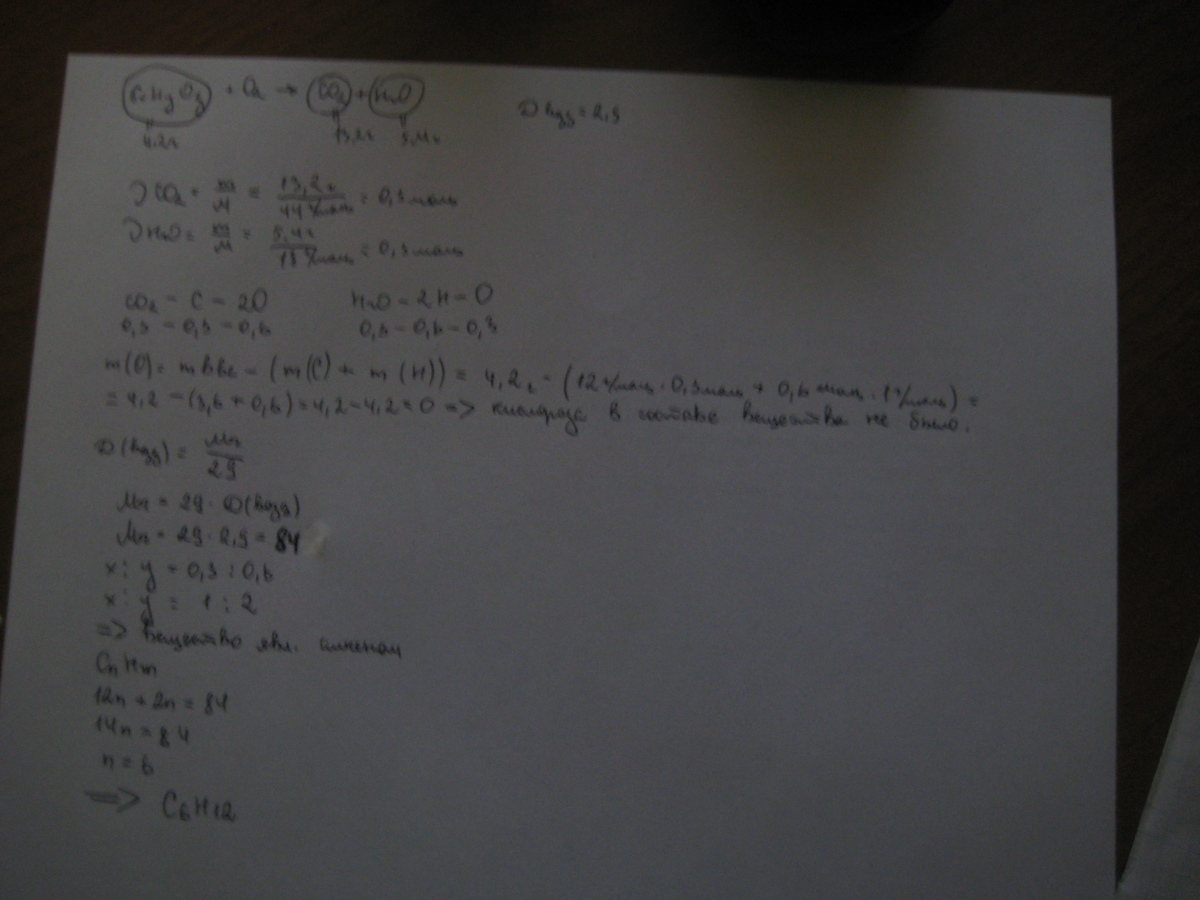 CxHyOz + O2 → CO2 + H2O    D возд = 2,9
4,2г    13,2г    5,4г
ν CO2 = m/M = 13,2г / 44г/моль = 0,3 моль
ν H2O = m/M = 5,4г / 18г/моль = 0,3 моль
CO2 – C – 2O    H2O – 2H – O
0,3 – 0,3 – 0,6    0,3 – 0,6 – 0,3
m(O) = m в-ва – (m(C) + m(H)) = 4,2г – (12г/моль · 0,3моль + 0,6 моль · 1г/моль) =
= 4,2 – (3,6 + 0,6) = 4,2 – 4,2 = 0 => кислорода в составе вещества не было.
D(возд) = Mr / 29
Mr = 29 · D(возд)
Mr = 29 · 2,9 = 84
x : y = 0,3 : 0,6
x : y = 1 : 2
=> вещество явл. алкеном
12n + 2n = 84
14n = 84
n = 6
=> C6H12